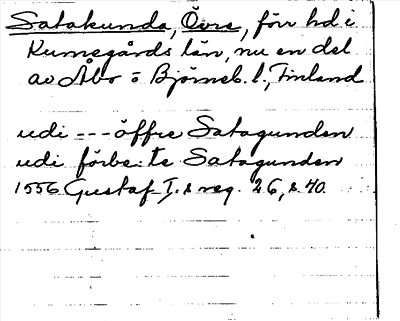 Satakunda, Övre, förr hd i
Kumogårds län, nu en del
av Åbo o Björneb. l., Finland
udi --- öffre Satagunden
udi förbe:te Satagunden
1556 Gustaf I:s reg. 26, s. 40.